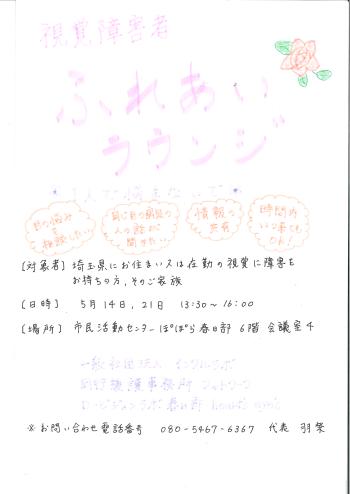 視覚障害者
ふれあい
ラウンジ
*1人で悩まないで*
目の悩みを
相談したい
同じ目の病気の
人の話が
聞きたい
情報の
共有
時間内
いつ来ても
OK!
[対象者] 埼玉県にお住まい又は在勤の視覚に障害を
お持ちの方,そのご家族
[日時] 5月14日,21日 13:30~16:00
[場所] 市民活動センターぽぽら春日部 6階 会議室4
一般社団法人
※お問い合わせ電話番号 080-5467-6367 代表